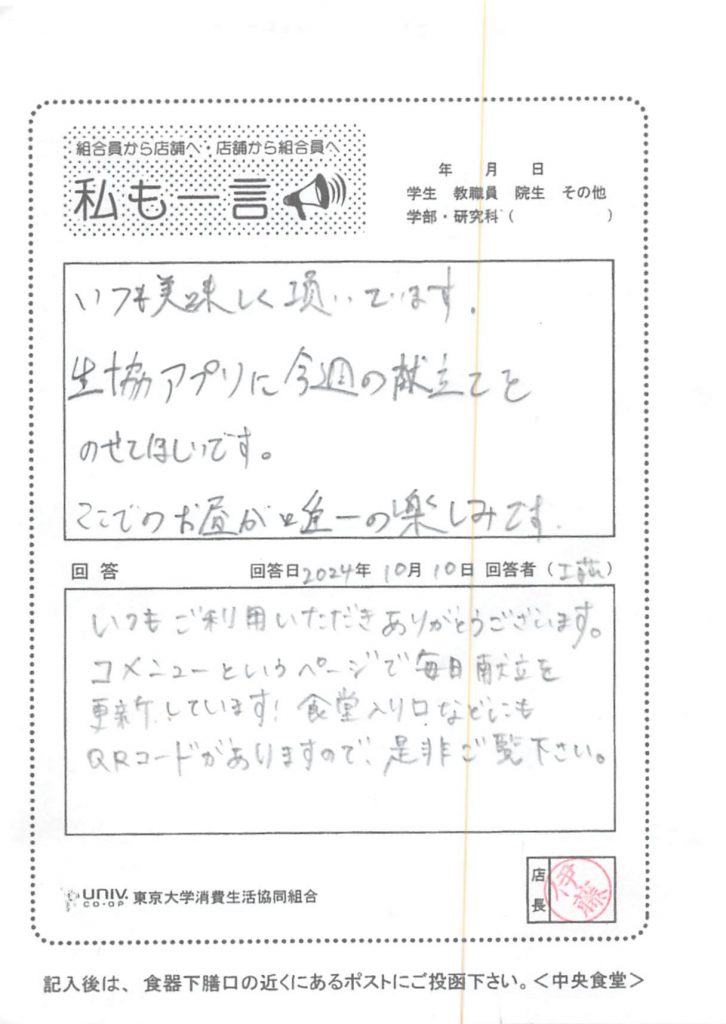 組合員から店舗へ・店舗から組合員へ
私も一言
年 月 日
学生 教職員 院生 その他
学部・研究科( )
いつも美味しく頂いています.
生協アプリに今週の献立てを
のせてほしいです。
ここでのお昼が唯一の楽しみです.
回答 回答日2024年 10月 10日 回答者(工藤)
いつもご利用いただきありがとうございます。
コメニューというページで毎日献立を
更新しています!食堂入り口などにも
QRコードがありますので、是非ご覧下さい。
UNIV. CO-OP 東京大学消費生活協同組合
店長 伊藤
記入後は、食器下膳口の近くにあるポストにご投函下さい。<中央食堂>